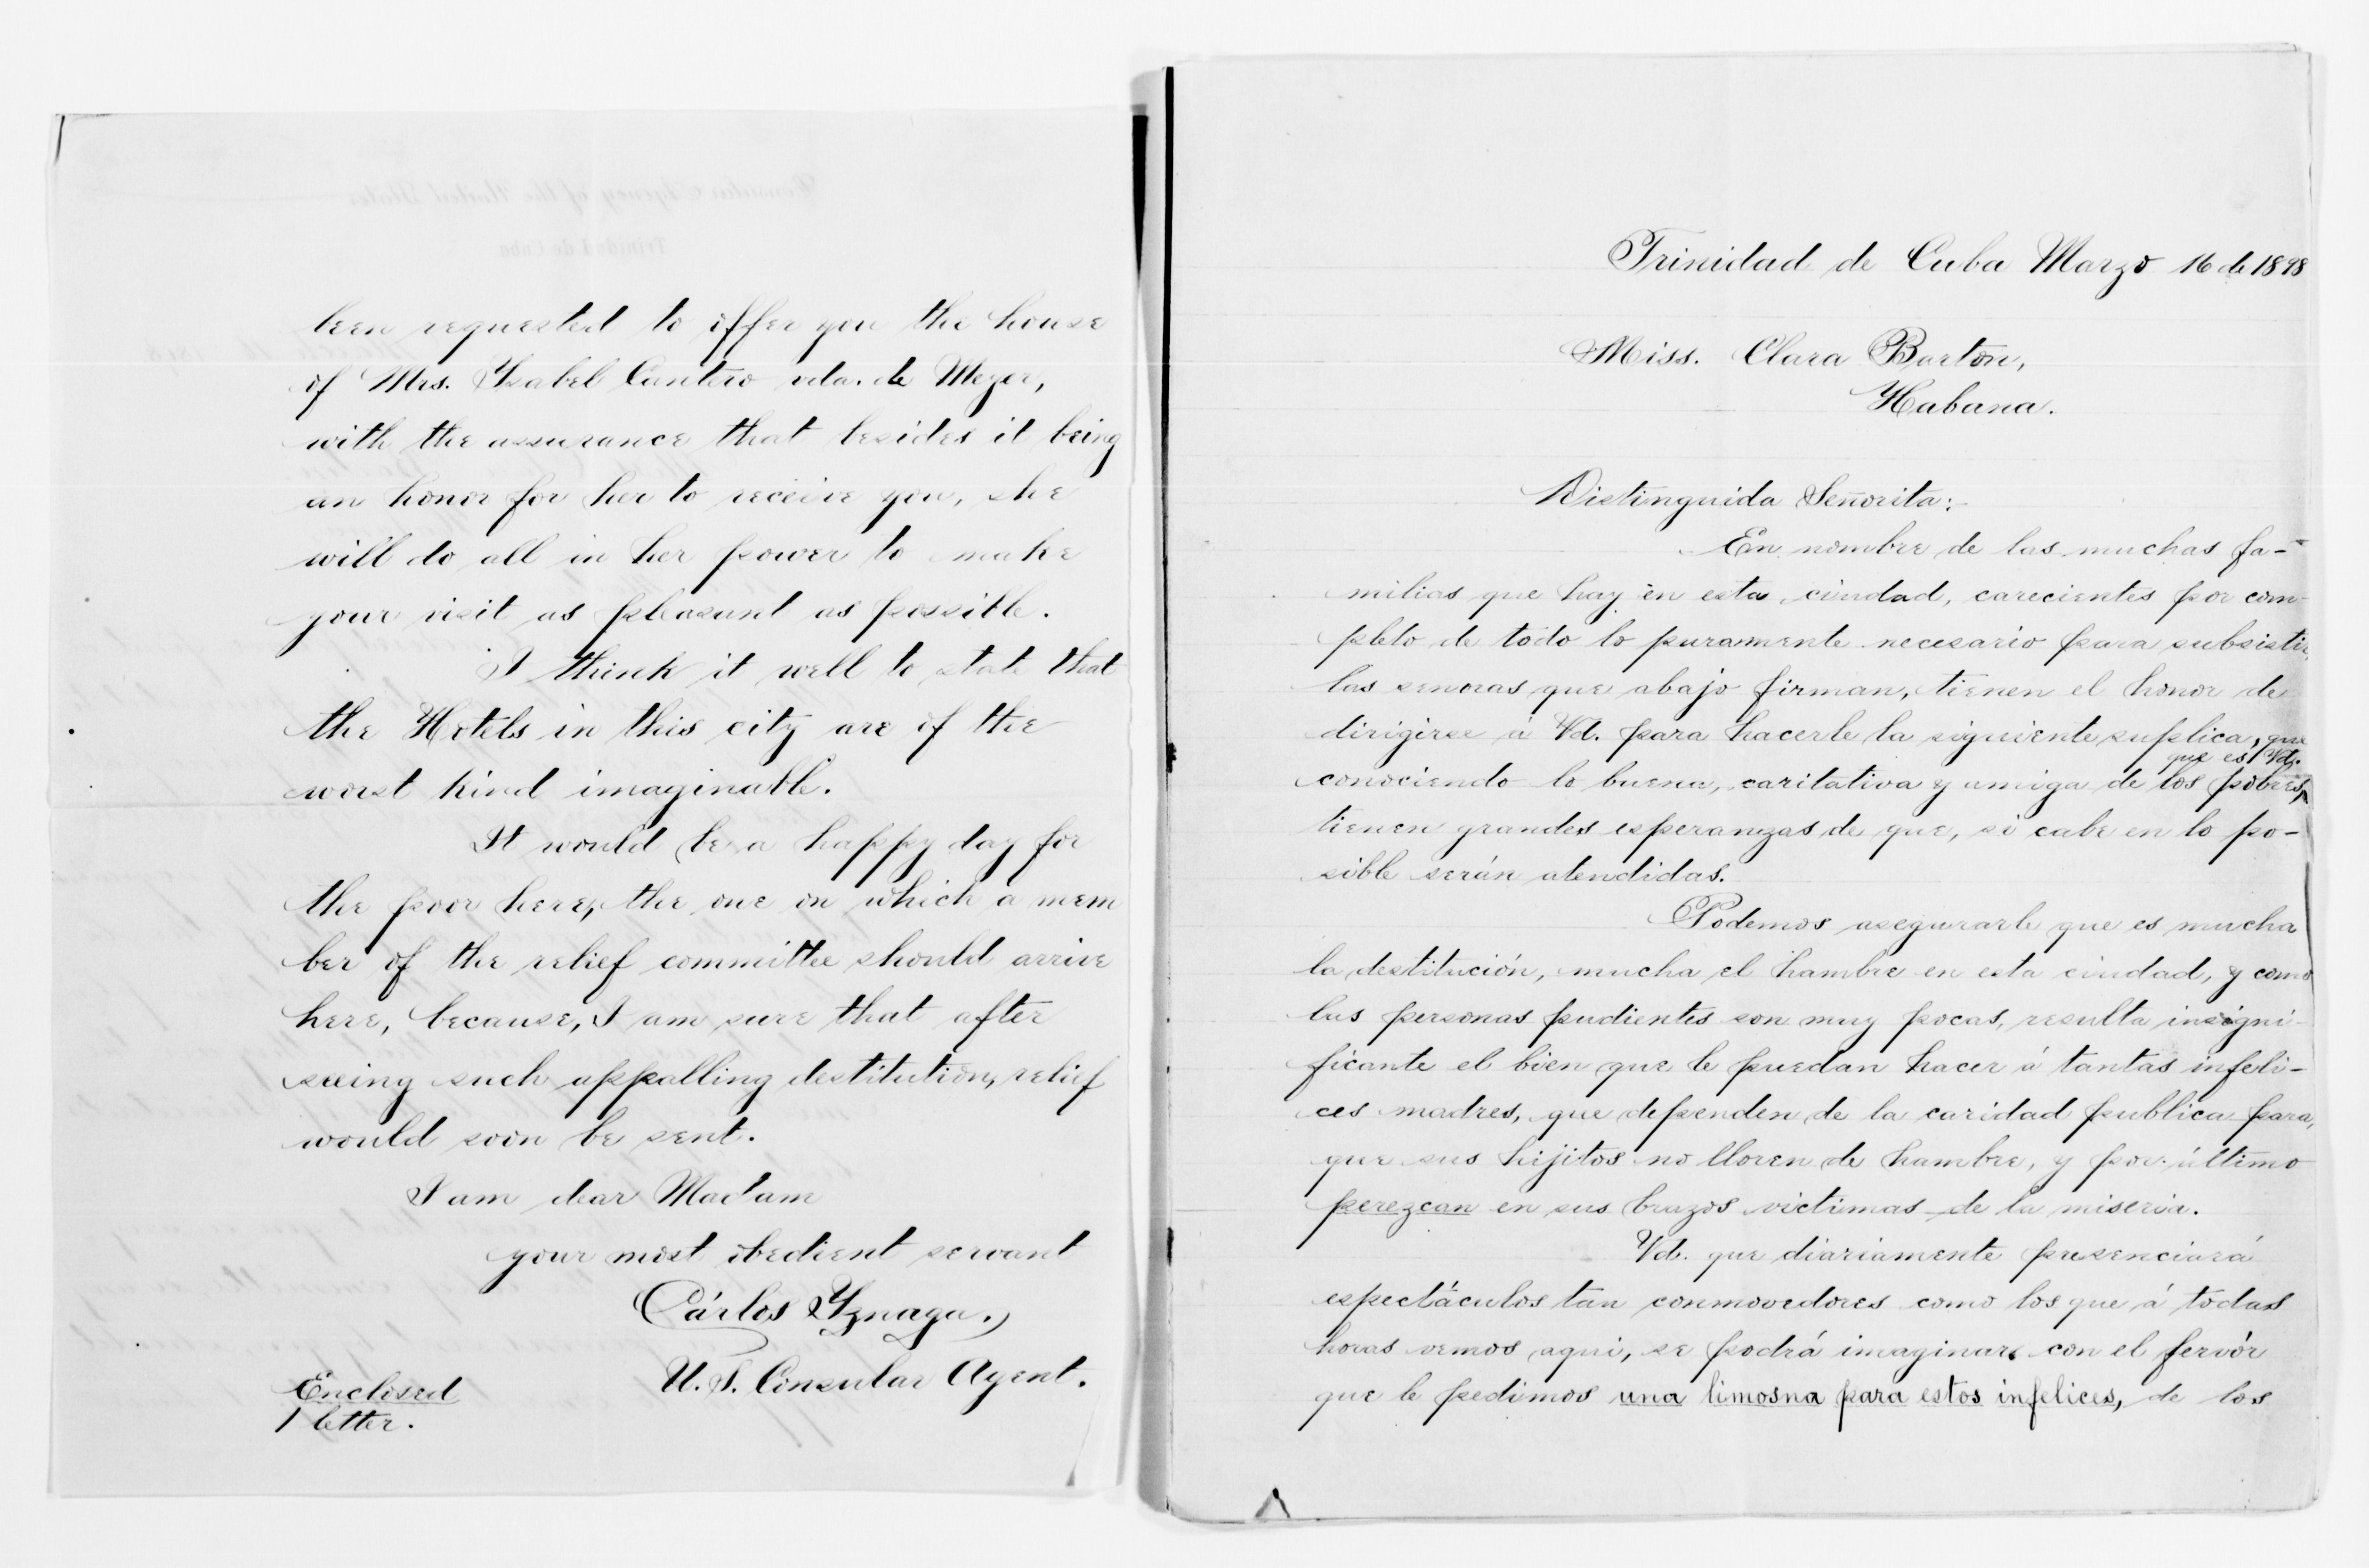 been requested to offer you the house
of Mrs. Ysabel Cantero vda. de Meyer,
with the assurance that besides it being
an honor for her to receive you, she
will do all in her power to make
your visit as pleasant as possible.
I think it well to state that
the Hotels in this city are of the
worst kind imaginable.
It would be a happy day for
the poor here, the one on which a mem
ber of the relief committee should arrive
here, because, I am sure that after
seeing such appalling destitution, relief
would soon be sent.
I am dear Madam
your most obedient servant
Cárlos Yznaga.
U.S. Consular Agent.
Enclosed
1 letter.
Trinidad de Cuba Marzo 16 de 1898
Miss. Clara Barton,
Habana.
Distinguida Señorita:
En nombre de las muchas fa-
milias que hay en esta ciudad, carecientes por com-
pleto de todo lo puramente necesario para subsistir,
las senoras que abajo firman, tienen el honor de
dirigirse á Vd. para hacerle la siguiente suplica, que
que es Vd.
conociendo lo buena, caritativa y amiga de los pobres,
tienen grandes esperanzas de que, si cabe en lo po-
sible serán atendidas.
Podemos asegurarle que es mucha
la destitución, mucha el hambre en esta ciudad, y como
las personas pudientes son muy pocas, resulta insigni-
ficante el bien que le puedan hacer á tantas infeli-
ces madres, que dependen de la caridad publica para,
que sus hijitos no lloren de hambre, y por último
perezcan en sus brazos victimas de la miseria.
Vd. que diariamente presenciará
espectáculos tan conmovedores como los que á todas
horas vemos aqui, se podrá imaginar con el fervór
que le pedimos una limosna para estos infelices, de los